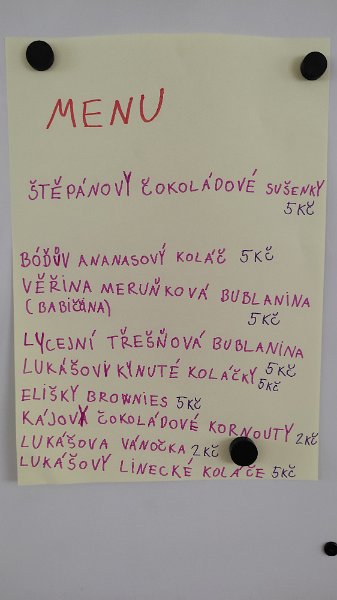 MENU
ŠTĚPÁNOVY ČOKOLÁDOVÉ SUŠENKY
5 KČ
BÓĎŮV ANANASOVÝ KOLÁČ 5 KČ
VĚŘINA MERUŇKOVÁ BUBLANINA
(BABIČČINA) 5 KČ
LYCEJNÍ TŘEŠŇOVÁ BUBLANINA
5 KČ
LUKÁŠOVY KYNUTÉ KOLÁČKY 5 KČ
ELIŠKY BROWNIES 5 KČ
KÁJOVY ČOKOLÁDOVÉ KORNOUTY 2 KČ
LUKÁŠOVA VÁNOČKA 2 KČ
LUKÁŠOVÝ LINECKÉ KOLÁČE 5 KČ